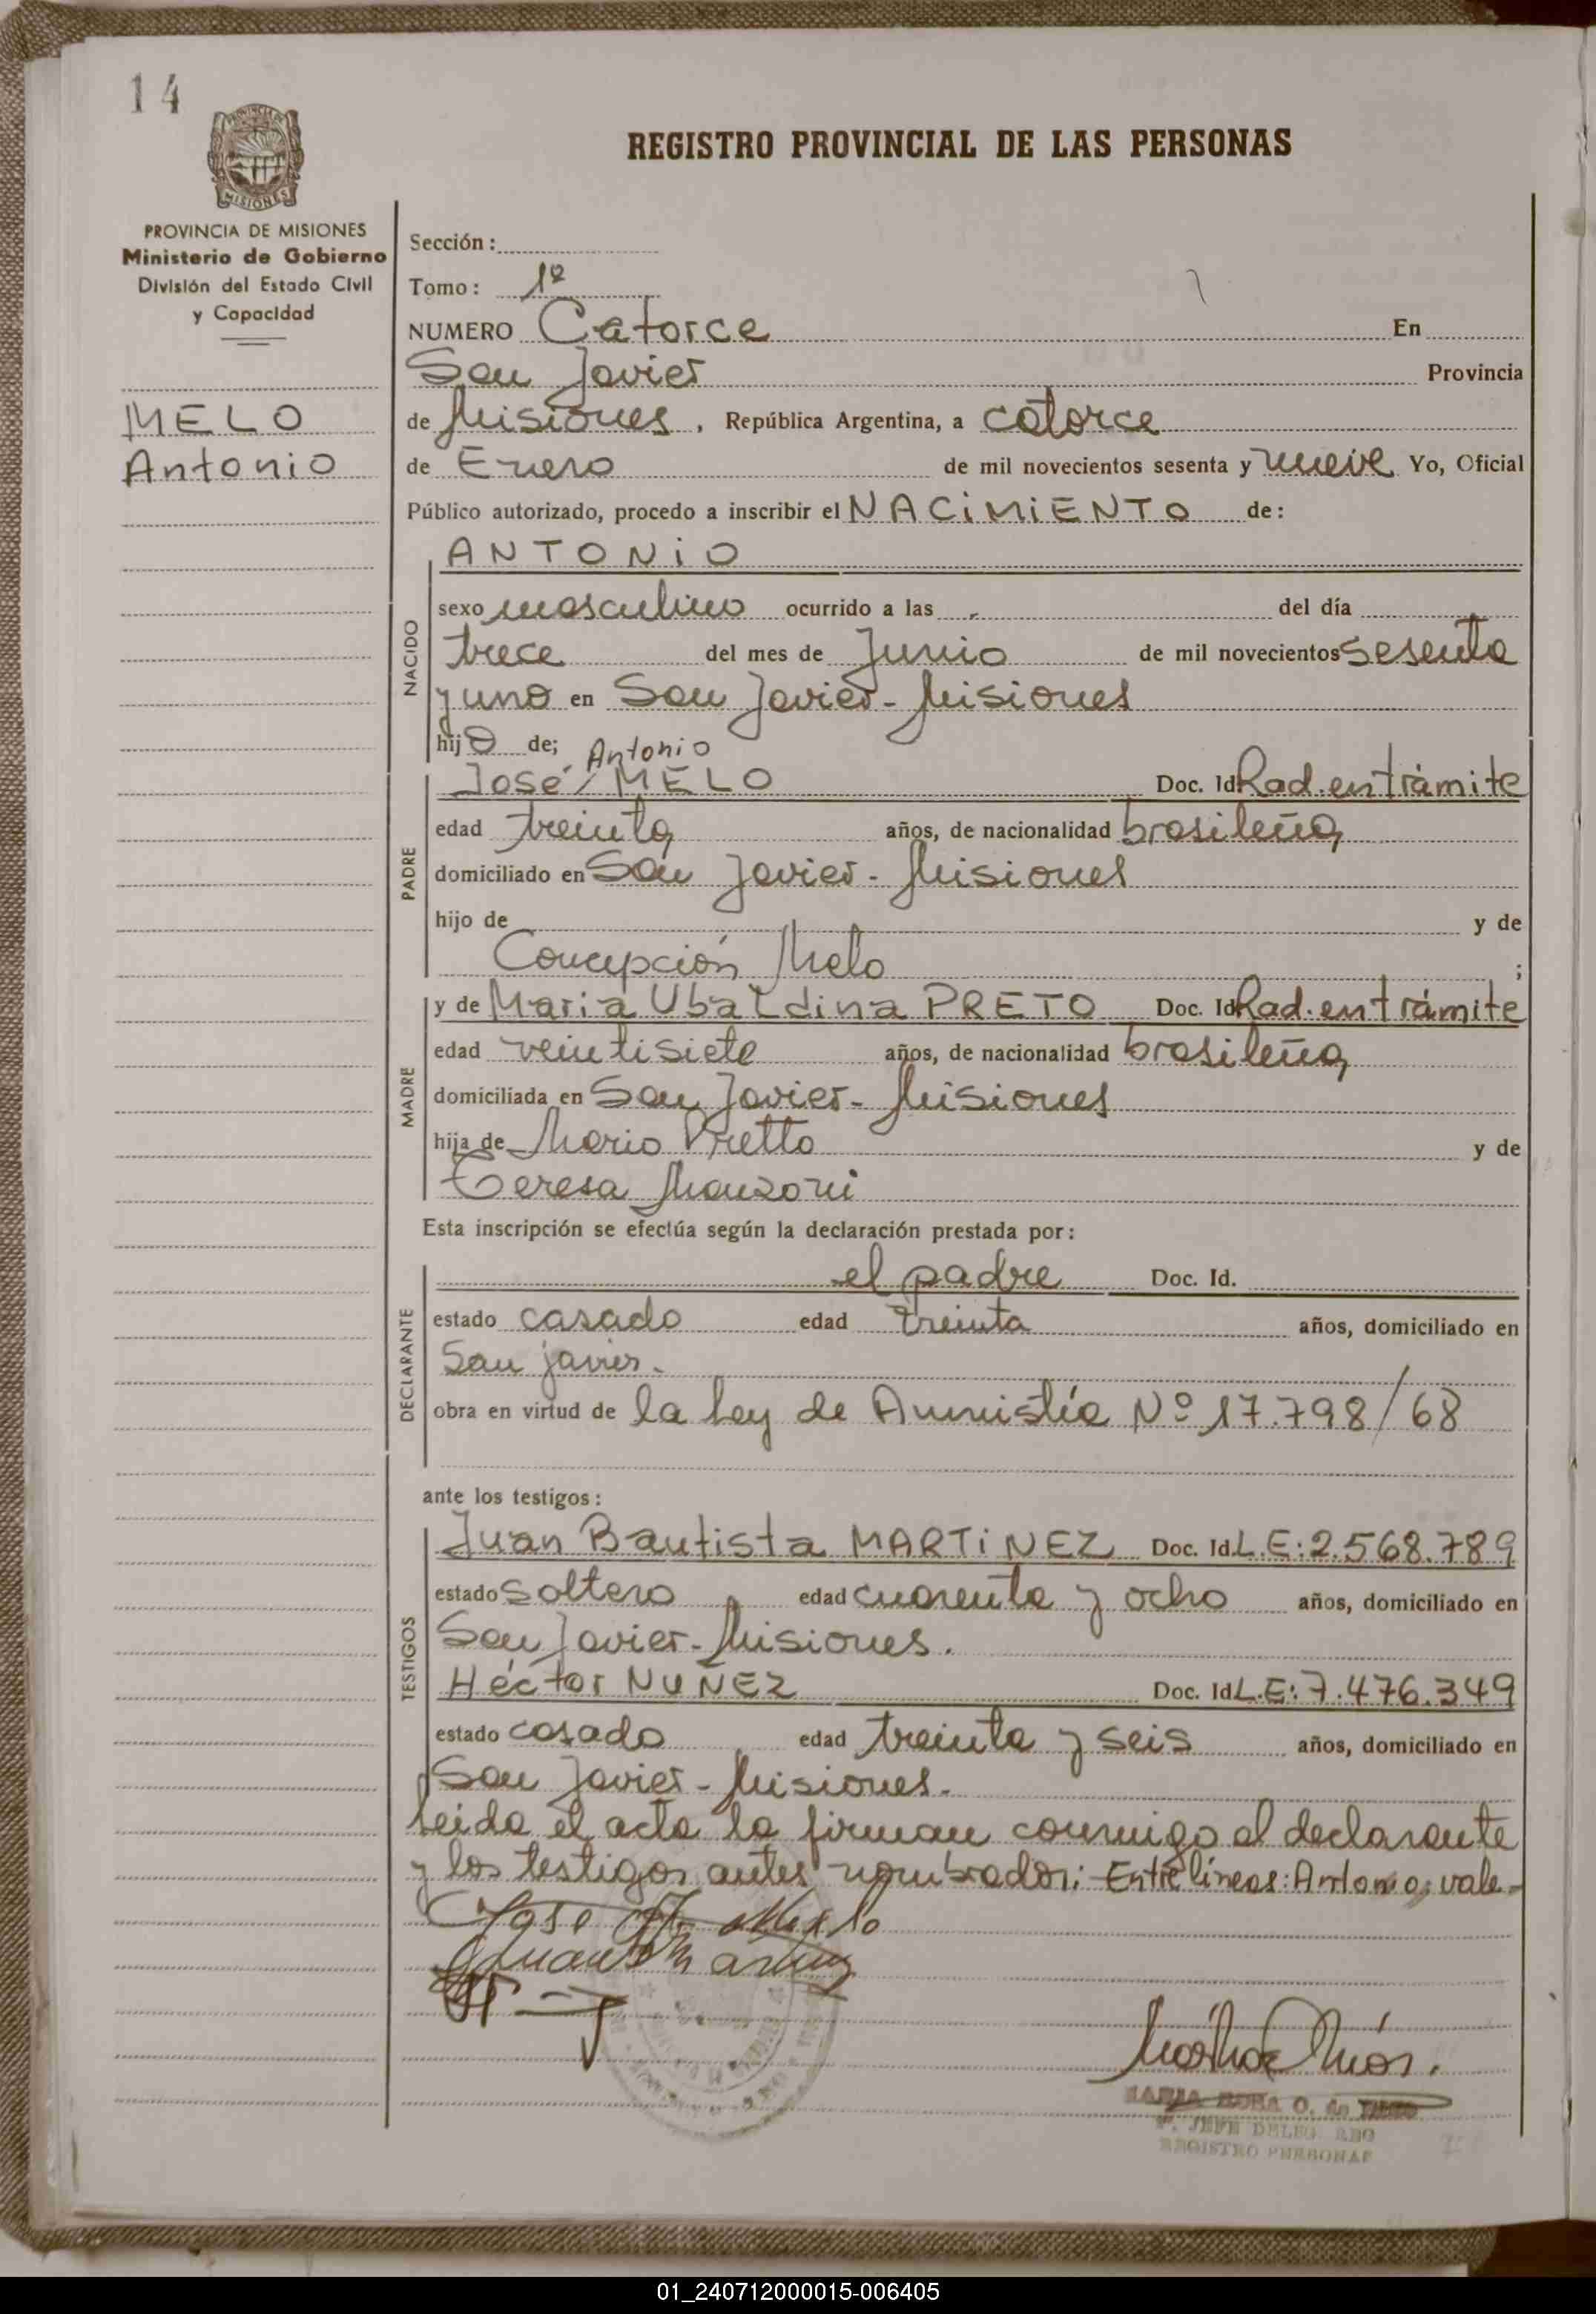 14
PROVINCIA DE
MISIONES
REGISTRO PROVINCIAL DE LAS PERSONAS
PROVINCIA DE MISIONES
Ministerio de Gobierno
División del Estado Civil
y Capacidad
MELO
Antonio
Sección:
Tomo: 1º
NUMERO Catorce En
San Javier Provincia
de Misiones, República Argentina, a catorce
de Enero de mil novecientos sesenta y nueve Yo, Oficial
Público autorizado, procedo a inscribir el NACIMIENTO de:
NACIDO
ANTONIO
sexo masculino ocurrido a las del día
trece del mes de Junio de mil novecientos sesenta
y uno en San Javier - Misiones
hijo de; Antonio
PADRE
José / MELO Doc. Id Rad. en trámite
edad treinta años, de nacionalidad brasileña
domiciliado en San Javier - Misiones
hijo de y de
Concepción Melo ;
MADRE
y de Maria Ubaldina PRETO Doc. Id Rad. en trámite
edad veintisiete años, de nacionalidad brasileña
domiciliada en San Javier - Misiones
hija de Mario Pretto y de
Teresa Manzoni
Esta inscripción se efectúa según la declaración prestada por:
DECLARANTE
el padre Doc. Id.
estado casado edad treinta años, domiciliado en
San javier.
obra en virtud de la Ley de Amnistía Nº 17.798/68
ante los testigos:
TESTIGOS
Juan Bautista MARTINEZ Doc. Id. L.E: 2.568.789
estado soltero edad cuarenta y ocho años, domiciliado en
San Javier - Misiones.
Héctor NUÑEZ Doc. Id L.E: 7.476.349
estado casado edad treinta y seis años, domiciliado en
San Javier - Misiones.
Leida el acta la firman conmigo el declarante
y los testigos antes nombrados: Entre líneas: Antonio; vale.-
Jose A. Melo
Juan B Martinez
MARIA ROSA O. de
P. JEFE DELEG. REG
REGISTRO PERSONAS
01_240712000015-006405